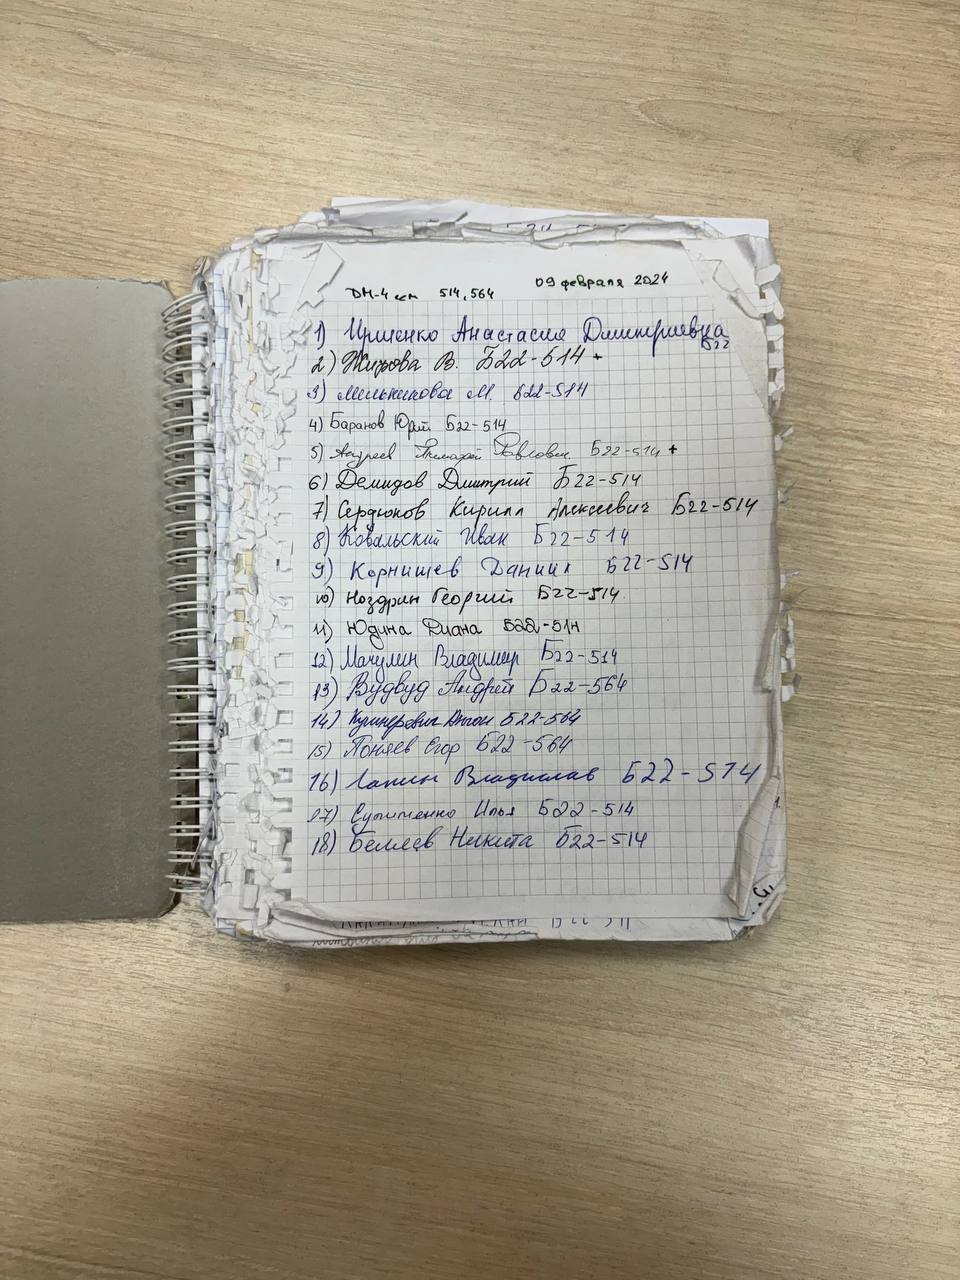 ДМ-4 сем 514, 564 09 февраля 2024
1) Иршенко Анастасия Дмитриевна Б22
2) Жирова В. Б22-514 +
3) Мельникова М. Б22-514
4) Баранов Юрий Б22-514
5) Андреев Тимофей Павлович Б22-514 +
6) Демидов Дмитрий Б22-514
7) Сердюков Кирилл Алексеевич Б22-514
8) Ковальский Иван Б22-514
9) Корнишев Даниил Б22-514
10) Ноздрин Георгий Б22-514
11) Юдина Диана Б22-514
12) Мачулин Владимир Б22-514
13) Вудвуд Андрей Б22-564
14) Кушнеревич Антон Б22-564
15) Поняев Егор Б22-564
16) Лапин Владислав Б22-514
17) Супитченко Илья Б22-514
18) Беляев Никита Б22-514